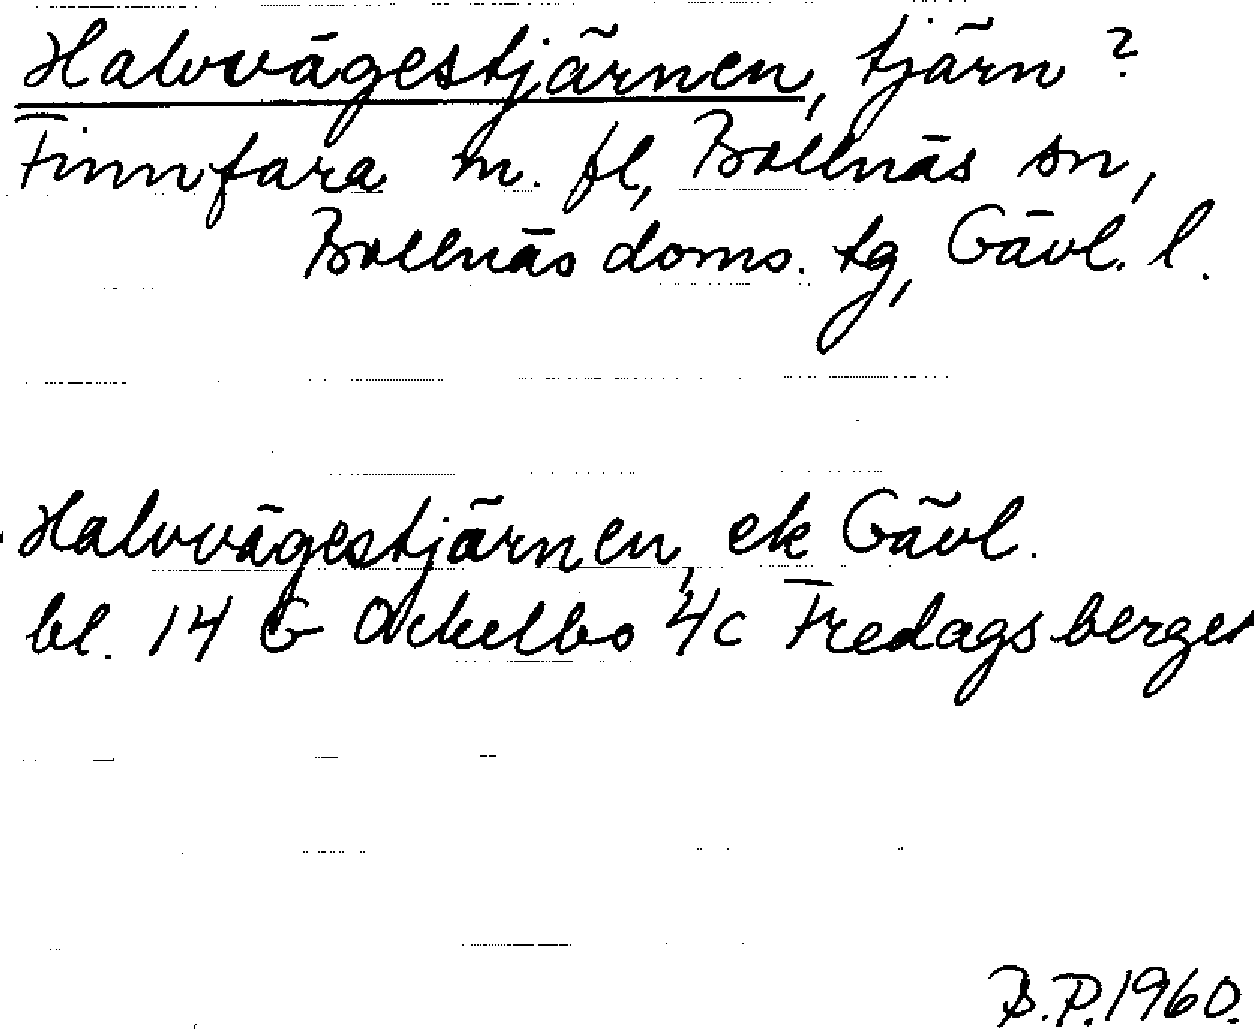 Halvvägestjärnen, tjärn?
Finnfara m. fl, Bollnäs sn,
Bollnäs doms. tg, Gävl. l.
Halvvägestjärnen, ek Gävl.
bl. 14 G Ockelbo 4c Fredagsberget
B.P. 1960.